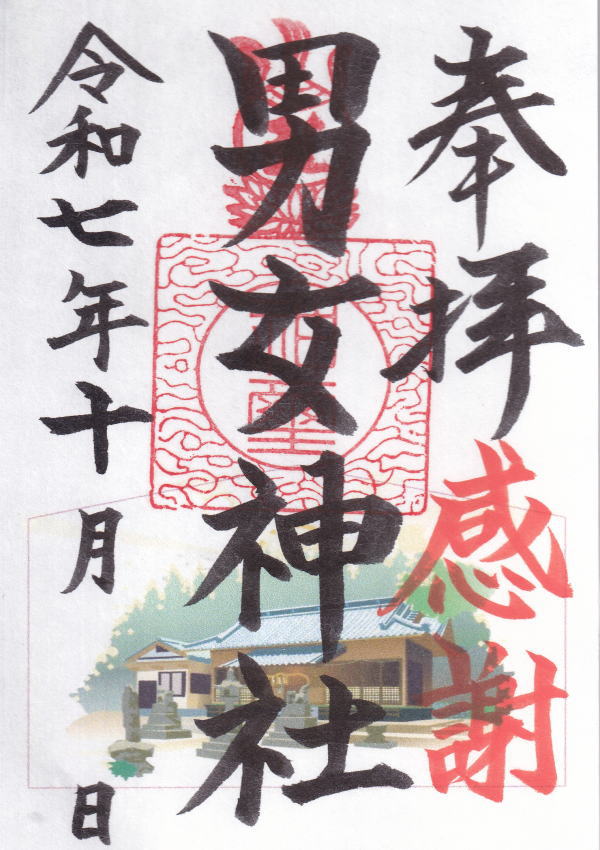 奉拝
感謝
男女神社
令和七年十月 日